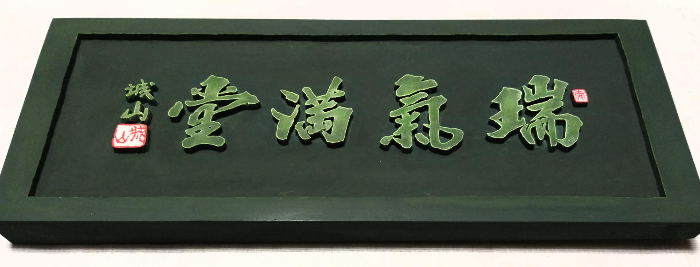 瑞氣滿堂
城山